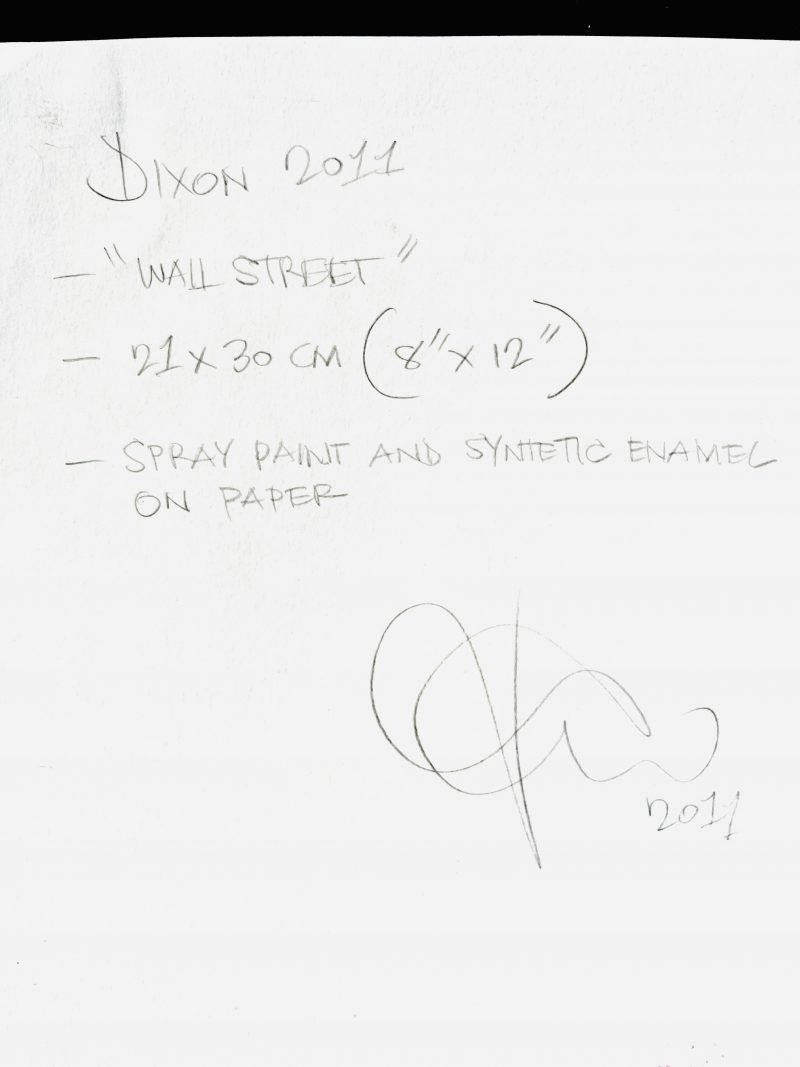 DIXON 2011
— "WALL STREET"
— 21 x 30 CM (8" x 12")
— SPRAY PAINT AND SYNTETIC ENAMEL
ON PAPER
2011